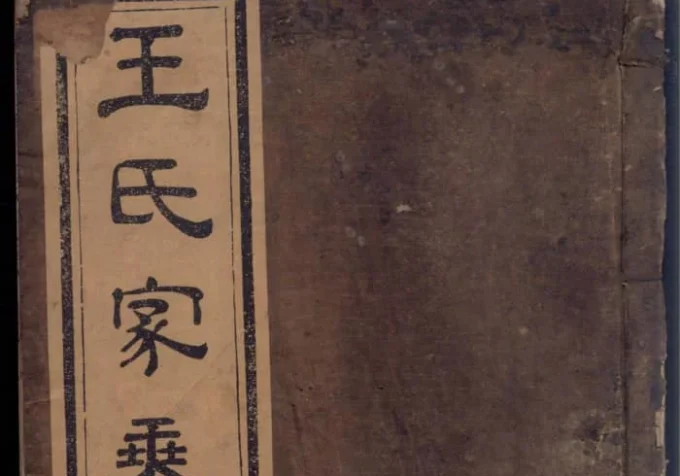 王氏家乘